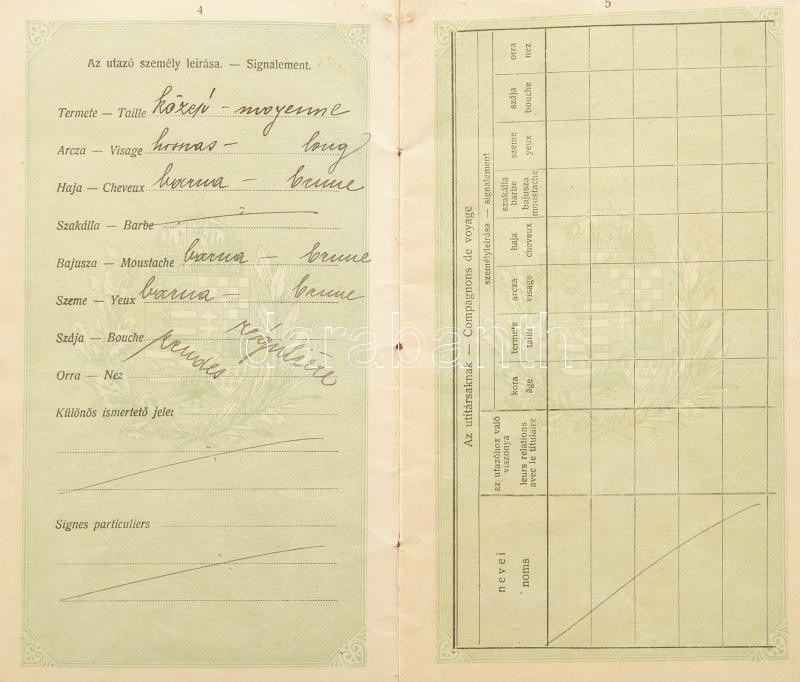 4
Az utazó személy leirása. — Signalement.
Termete — Taille közép – moyenne
Arcza — Visage hosszas – long
Haja — Cheveux barna – brune
Szakálla — Barbe
Bajusza — Moustache barna – brune
Szeme — Yeux barna – brune
Szája — Bouche
Orra — Nez rendes régulière
Különös ismertető jelei
Signes particuliers
5
Az utitársaknak — Compagnons de voyage
személyleirása — signalement
nevei
noms
az utazóhoz való viszonya
leurs relations avec le titulaire
kora
âge
termete
taille
arcza
visage
haja
cheveux
szakálla
barbe
bajusza
moustache
szeme
yeux
szája
bouche
orra
nez
darabanth